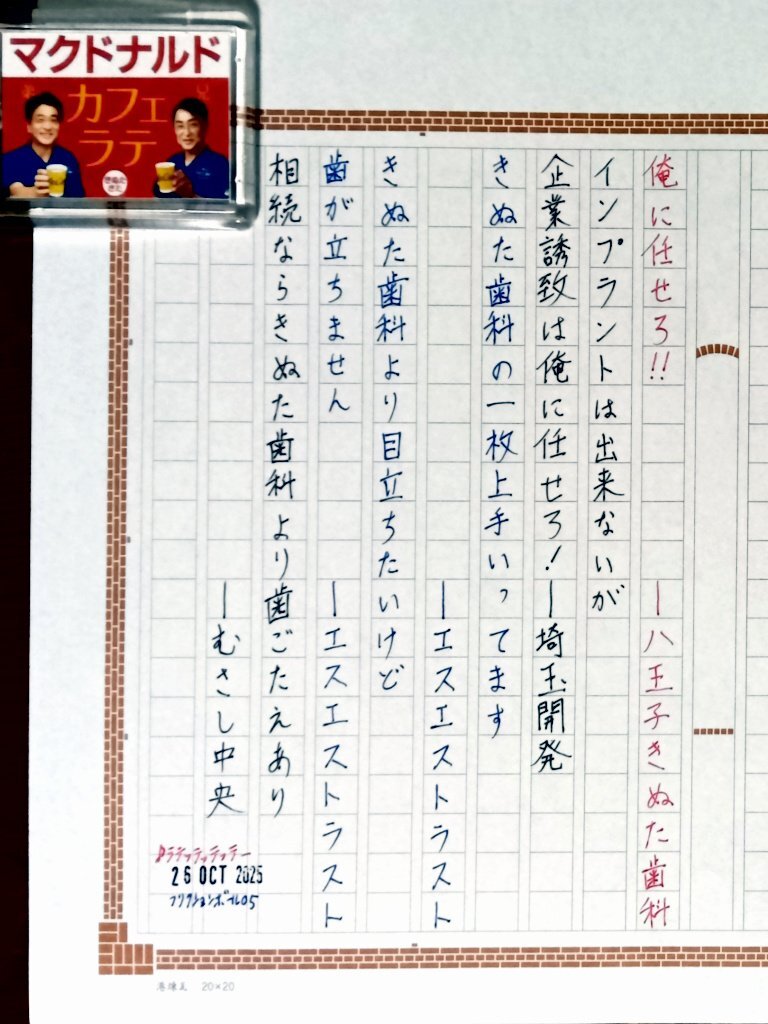 マクドナルド
カフェ
ラテ
俺に任せろ!!
―八王子きぬた歯科
インプラントは出来ないが
企業誘致は俺に任せろ!―埼玉開発
きぬた歯科の一枚上手いってます
―エスエストラスト
きぬた歯科より目立ちたいけど
歯が立ちません
―エスエストラスト
相続ならきぬた歯科より歯ごたえあり
―むさし中央
♪ラテッテッテッテー
26 OCT 2025
フリクションボール05
20×20